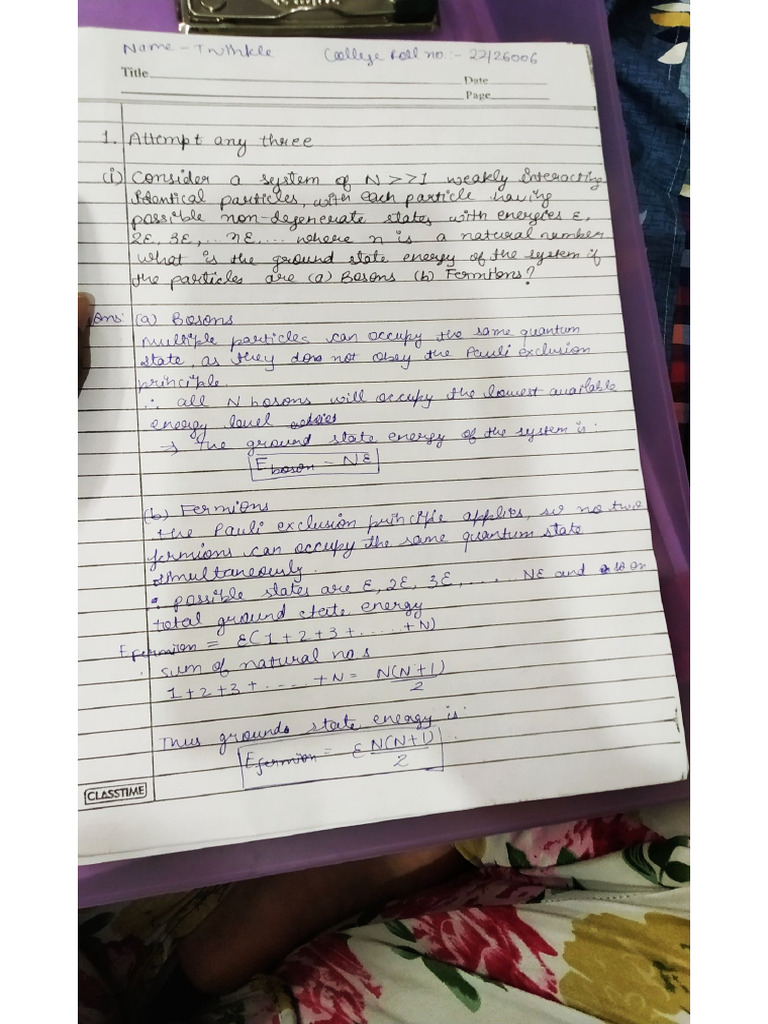 Name - Twinkle College Roll no. :- 22/26006
Title
Date
Page
1. Attempt any three
(i) Consider a system of N>>1 weakly interacting
Identical particles, with each particle having
possible non-degenerate states with energies ε,
2ε, 3ε, ... nε, ... where n is a natural number
what is the ground state energy of the system if
the particles are (a) Bosons (b) Fermions?
ans: (a) Bosons
Multiple particles can occupy the same quantum
state, as they does not obey the Pauli exclusion
principle.
∴ all N bosons will occupy the lowest available
energy level
→ The ground state energy of the system is:
E boson = Nε
(b) Fermions
the Pauli exclusion principle applies, so no two
fermions can occupy the same quantum state
simultaneously.
∴ possible states are ε, 2ε, 3ε, ...... Nε and so on
total ground state energy
E fermion = ε(1+2+3+.....+N)
sum of natural nos
1+2+3+.....+N = N(N+1)/2
Thus grounds state energy is:
E fermion = ε N(N+1)/2
CLASSTIME